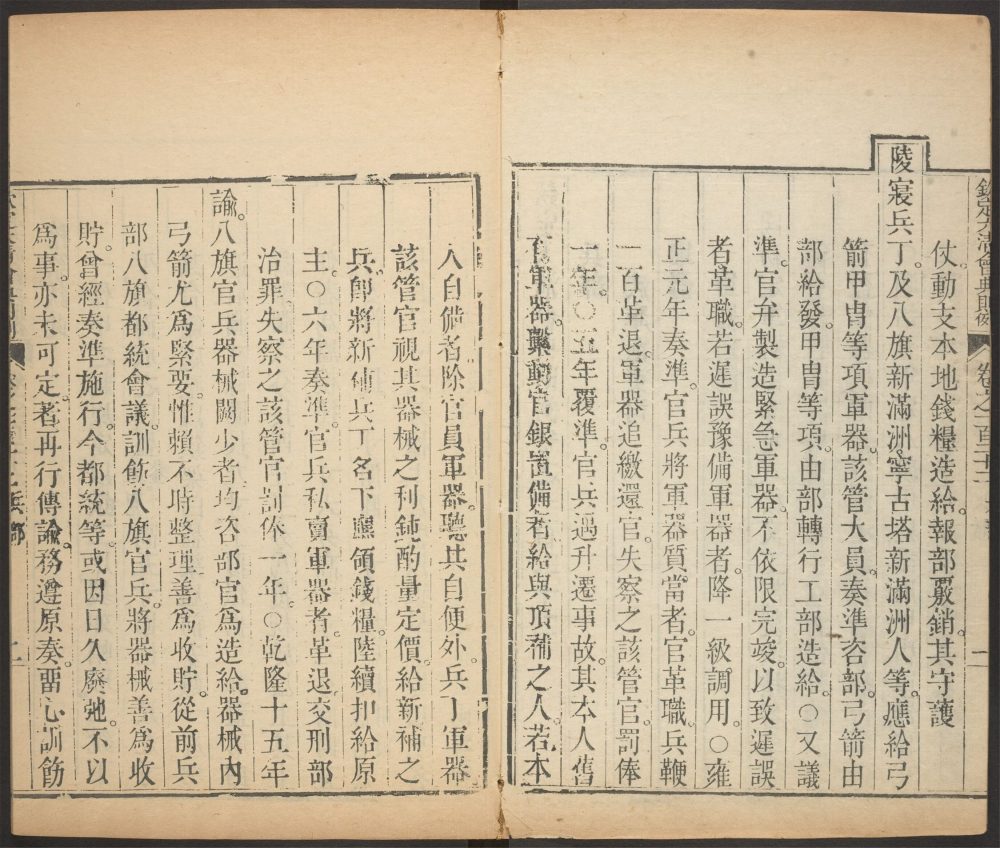 欽定大清會典則例 卷一百二十 一
仗動支本地錢糧造給報部覈銷其守護
陵寢兵丁及八旗新滿洲寧古塔新滿洲人等應給弓
箭甲冑等項軍器該管大員奏準咨部弓箭由
部給發甲冑等項由部轉行工部造給○又議
準官弁製造緊急軍器不依限完竣以致遲誤
者革職若遲誤豫備軍器者降一級調用○雍
正元年奏準官兵將軍器質當者官革職兵鞭
一百革退軍器追繳還官失察之該管官罰俸
一年○五年覆準官兵遇升遷事故其本人舊
有軍器繫動官銀置備者給與頂補之人若本
人自備者除官員軍器聽其自便外兵丁軍器
該管官視其器械之利鈍酌量定價給新補之
兵卽將新補兵丁名下應領錢糧陸續扣給原
主○六年奏準官兵私賣軍器者革退交刑部
治罪失察之該管官罰俸一年○乾隆十五年
諭八旗官兵器械闕少者均咨部官爲造給器械內
弓箭尤爲緊要惟賴不時整理善爲收貯從前兵
部八旗都統會議訓飭八旗官兵將器械善爲收
貯曾經奏準施行今都統等或因日久廢弛不以
爲事亦未可定著再行傳諭務遵原奏畱心訓飭
大清會典則例 兵部